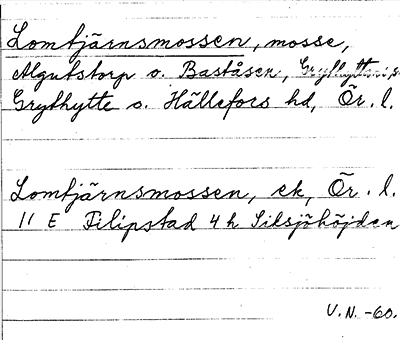 Lomtjärnsmossen, mosse,
Algutstorp o. Baståsen, Grythytte s.
Grythytte o. Hällefors hd, Ör. l.
Lomtjärnsmossen, ek, Ör. l.
11 E Filipstad 4 h Siksjöhöjden
V.N. -60.